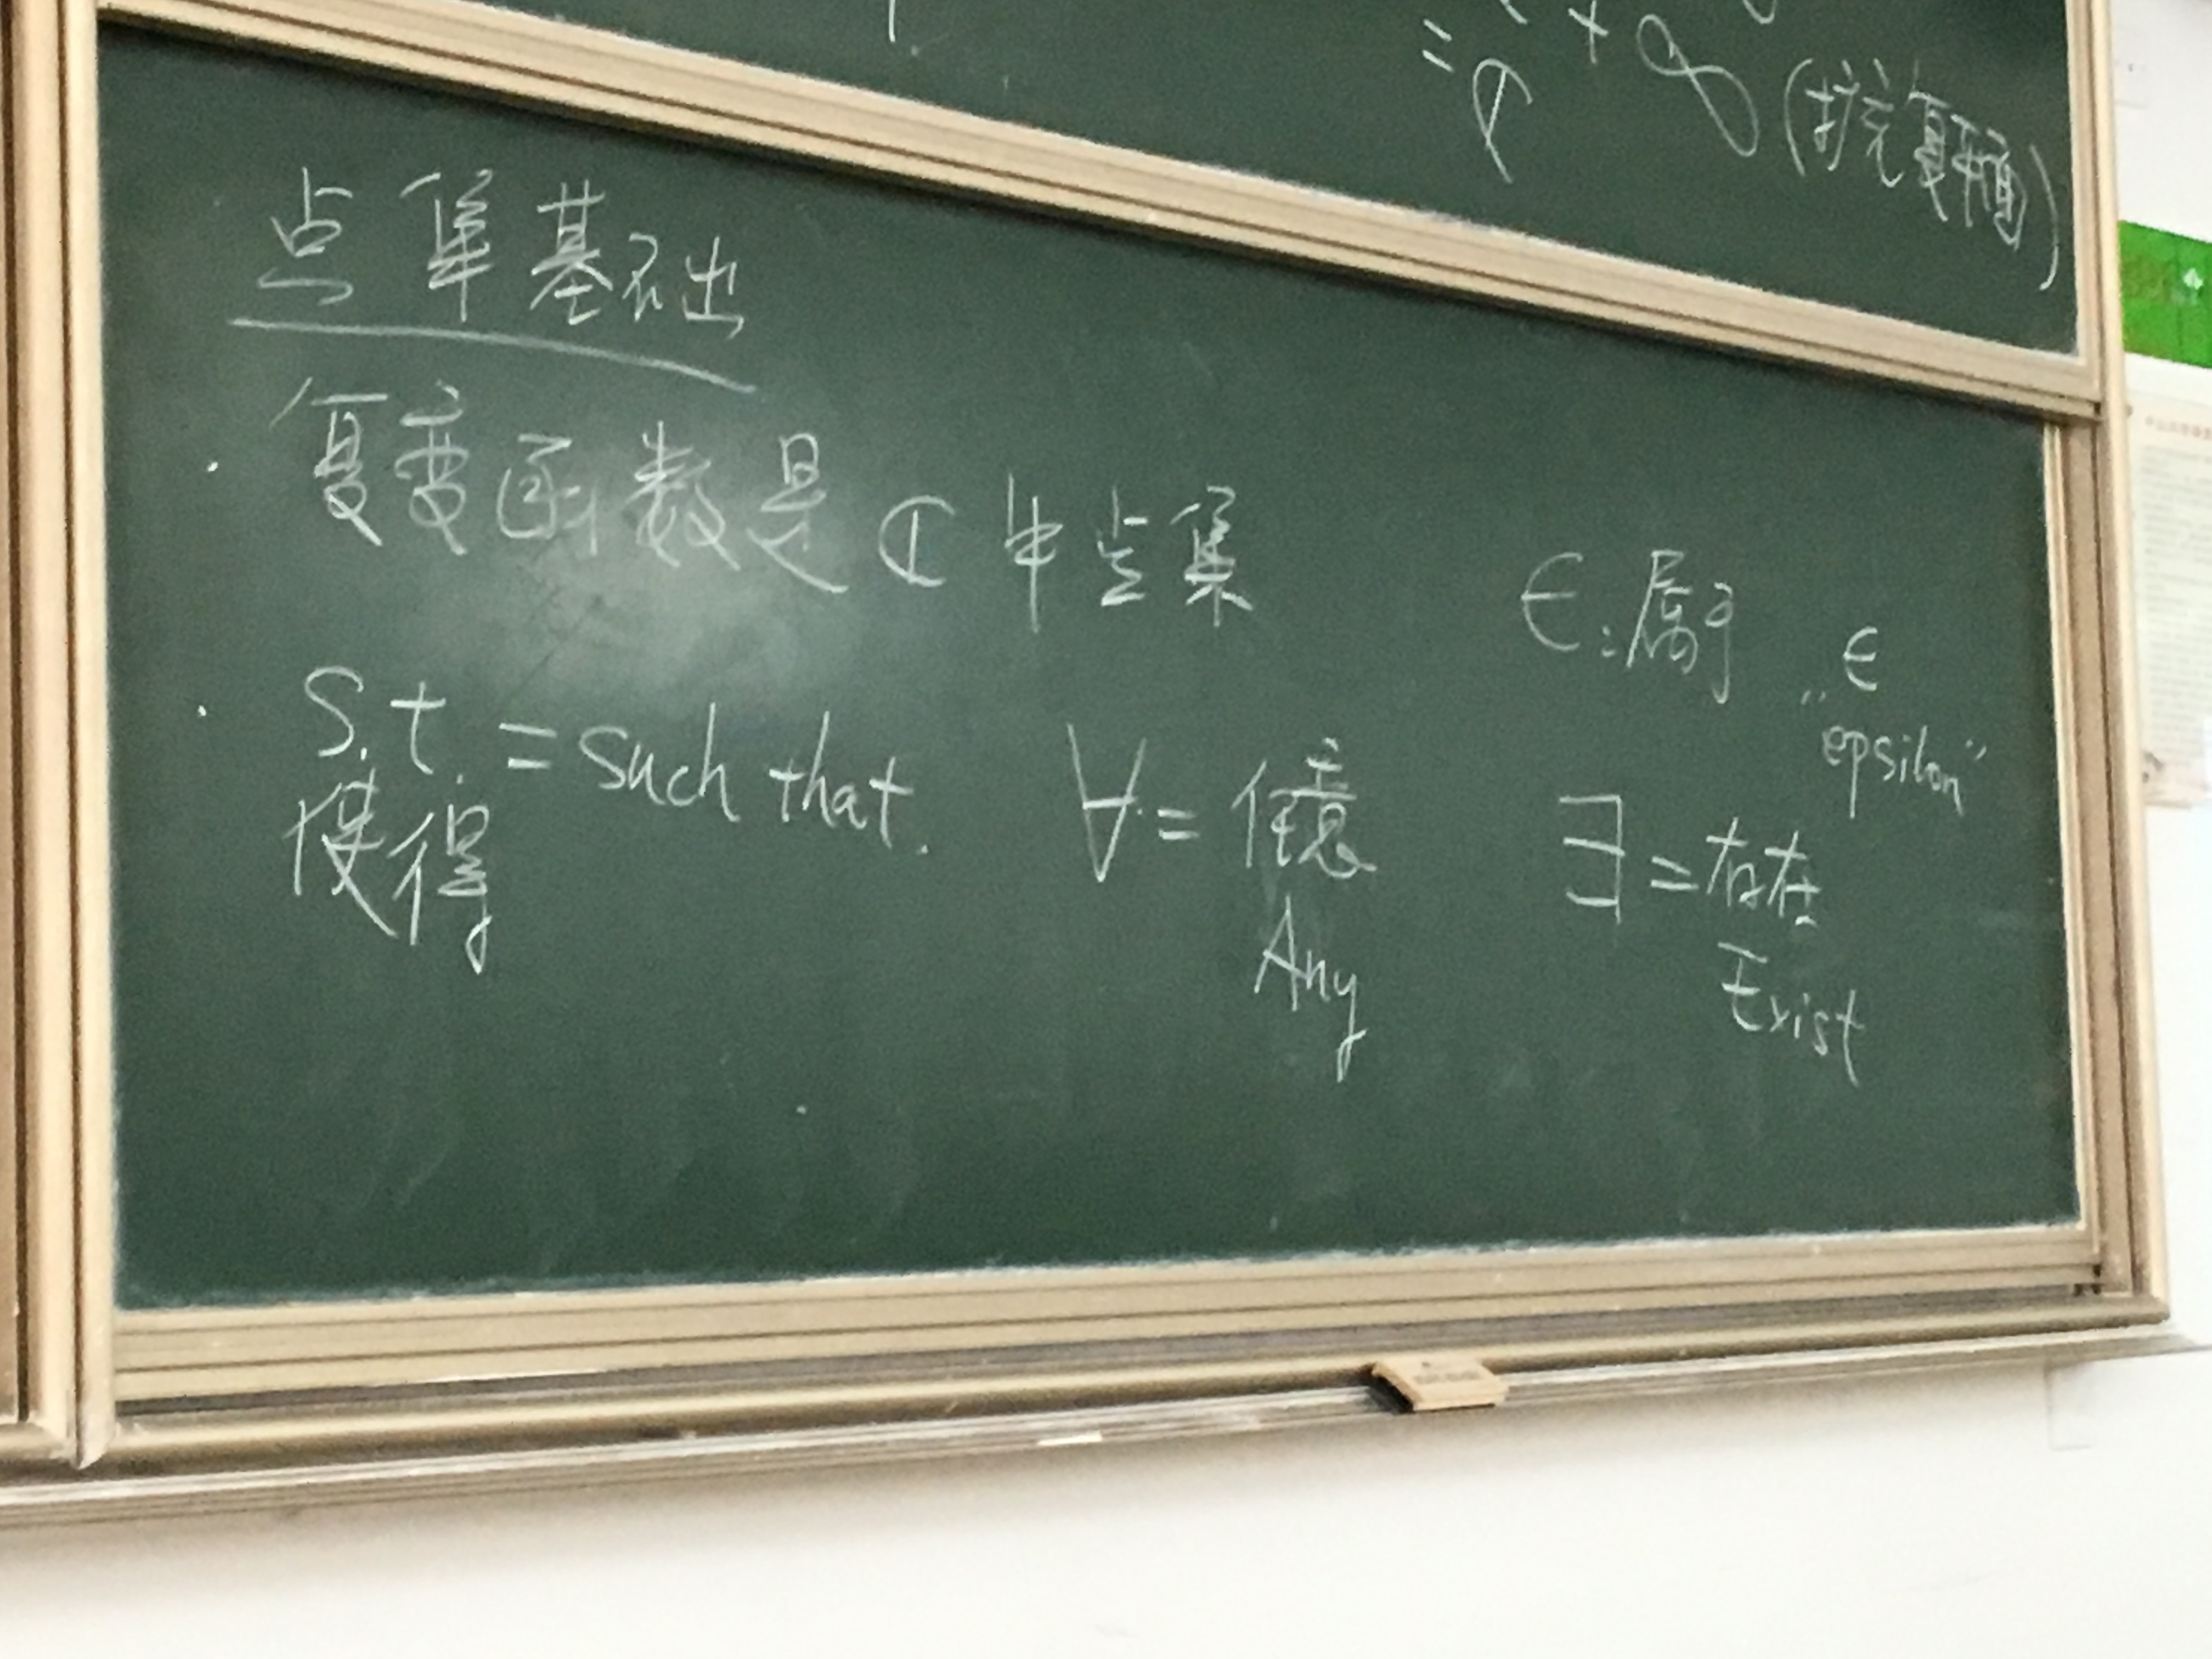 = ℂ + ∞ (扩充复平面)
点集基础
复变函数是 ℂ 中点集
∈:属于 "ϵ
epsilon"
S.t. = such that. ∀ = 任意 ∃ = 存在
使得 Any Exist